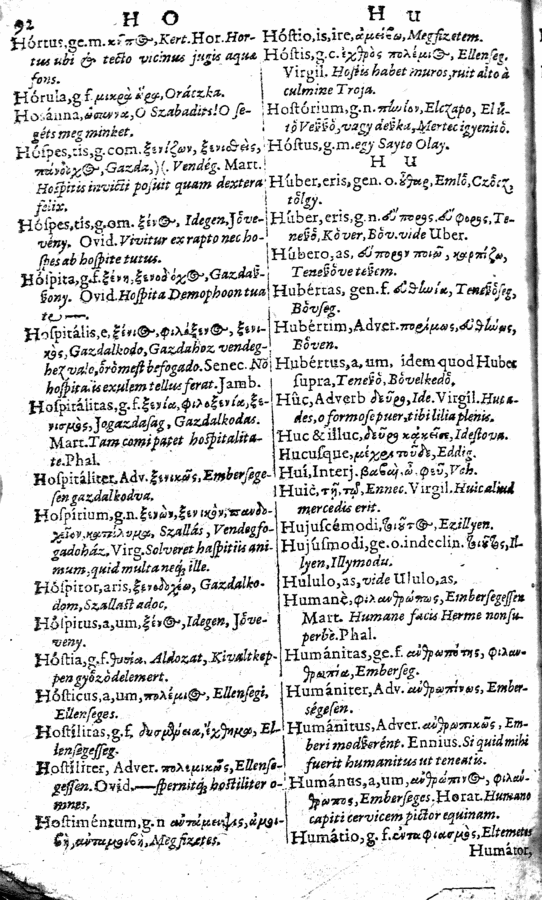 92 H O
Hórtus, ge. m. κῆπος, Kert. Hor. Hor-
tus ubi & tecto vicinus jugis aquæ
fons.
Hórula, g. f. μικρὰ ὥρα, Orátzka.
Hosánna, ὡσαννα, O Szabadits! O se-
géts meg minket.
Hóspes, tis, g. com. ξενίζων, ξενισθεὶς,
πάνδοχος, Gazda, )(. Vendég. Mart.
Hospitis invicti posuit quam dextera
felix.
Hóspes, tis, g. om. ξένος, Idegen, Jőve-
vény. Ovid. Vivitur ex rapto nec ho-
spes ab hospite tutus.
Hóspita, g. f. ξένη, ξενοδόχος,
Ovid. Hospita Demophoon tua
te —.
Hospitális, e, ξένιος, φιλόξενος, ξενι-
κὸς, Gazdalkodo, Gazdahoz vendeg-
hez valo, örömest befogado. Senec. No
hospita is exulem tellus ferat. Jamb.
Hospitálitas, g. f. ξενία, φιλοξενία, ξε-
νισμὸς, Jogazdasag, Gazdalkodas.
Mart. Tam comi patet hospitalita-
te. Phal.
Hospitáliter, Adv. ξενικῶς, Embersege-
sen gazdalkodva.
Hospítium, g. n. ξενὼν, ξενικὸν, πανδο-
χεῖον, κατάλυμα, Szallás, Vendegfo-
gadoház. Virg. Solveret haspitiis ani-
mum, quid multa neq; ille.
Hóspitor, aris, ξενοδοχέω, Gazdalko-
dom, Szallast adoc.
Hóspitus, a, um, ξένος, Idegen, Jőve-
veny.
Hóstia, g. f. θυσία. Aldozat, Kivaltkep-
pen győzödelemert.
Hósticus, a, um, πολέμιος, Ellensegi,
Ellenseges.
Hostílitas, g. f. δυσμένεια, ἔχθρα, El-
lensegesseg.
Hostíliter, Adver. πολεμικῶς, Ellense-
gessen. Ovid. — spernitq; hostiliter o-
mnes.
Hostiméntum, g. n ἀντάμειψις, ἀμοι-
βὴ, ἀνταμοιβὴ, Megfizetes.
H u
Hóstio, is, ire, ἀμείβω, Megfizetem.
Hóstis, g. c. ἐχθρὸς πολέμιος, Ellenseg.
Virgil. Hostis habet muros, ruit alto à
culmine Troja.
Hostórium, g. n. Elczapo, El ü-
tő Veßßö, vagy deßka, Mertec igyenitö.
Hóstus, g. m. egy Sayto Olay.
H u
Húber, eris, gen. o. οὖθαρ, Emlő, Czőcz
tőlgy.
Húber, eris, g. n. εὔπορος. εὔφορος, Te-
neßö, Köver, Böv. vide Uber.
Húbero, as, εὔπορον ποιῶ, καρπίζω,
Teneßöve teßem.
Hubértas, gen. f. εὐθηνία, Teneßöseg,
Bövseg.
Hubértim, Adver. πορίμως, εὐθηνῶς,
Böven.
Hubértus, a, um, idem quod Huber
supra, Teneßö, Bövelkedö.
Hûc, Adverb δεῦρο, Ide. Virgil. Huc a-
des, o formose puer, tibi lilia plenis.
Huc & illuc, δεῦρο κἀκεῖσε, Ide stova.
Hucusque, μέχρι τοῦδε, Eddig.
Huí, Interj. βαβαὶ, ὢ, φεῦ, Veh.
Huic, τῇ, τῷ, Ennec. Virgil. Huic aliud
mercedis erit.
Hujuscémodi, τοιοῦτος, Ezillyen.
Hujúsmodi, ge. o. indeclin. τοιοῦτος, Il-
lyen, Illymodu.
Hululo, as, vide Ululo, as,
Humanè, φιλανθρώπως, Embersegessen
Mart. Humane facis Herme non su-
perbè. Phal.
Humánitas, ge. f. ἀνθρωπότης, φιλαν-
θρωπία, Emberseg.
Humániter, Adv. ἀνθρωπίνως, Ember-
ségesen.
Humánitus, Adver. ἀνθρωπικῶς, Em-
beri modßerént. Ennius. Si quid mihi
fuerit humanitus ut teneatis.
Humánus, a, um, ἀνθρώπινος, φιλάν-
θρωπος, Emberseges. Horat. Humano
capiti cervicem pictor equinam.
Humátio, g. f. ἐνταφιασμὸς, Eltemetes
Humátor,